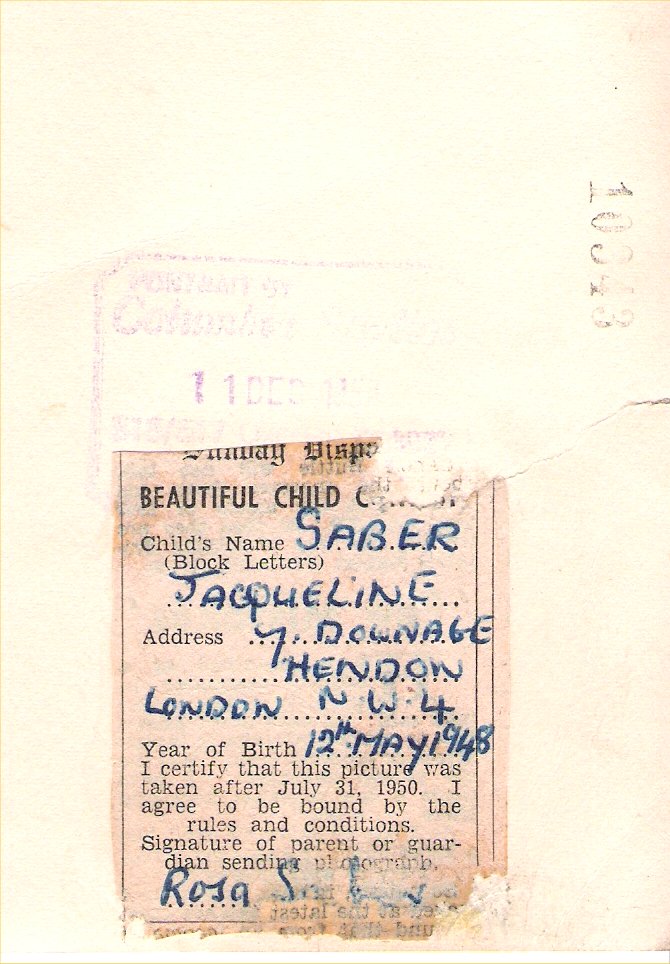 10343
PORTRAIT BY
11 DEC
Sunday
BEAUTIFUL CHILD
Child's Name SABER
(Block Letters)
JACQUELINE
Address 7. DOWNAGE
HENDON
LONDON N.W.4
Year of Birth 12th MAY 1948
I certify that this picture was
taken after July 31, 1950. I
agree to be bound by the
rules and conditions.
Signature of parent or guar-
dian sending photograph.
Rosa